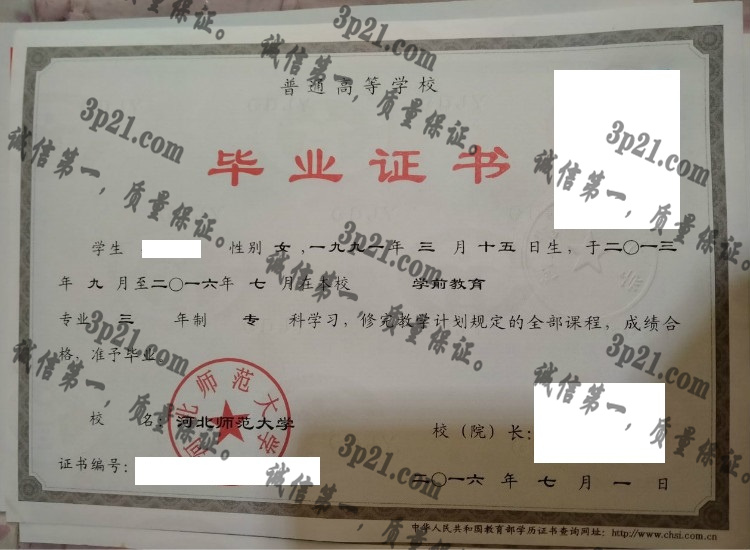 普通高等学校
毕业证书
学生 性别 女 ,一九九一年 三 月 十五 日生, 于二〇一三
年 九 月至二〇一六年 七 月在本校 学前教育
专业 三 年制 专 科学习, 修完教学计划规定的全部课程, 成绩合
格, 准予毕业。
校 名: 河北师范大学
校 (院) 长:
证书编号:
二〇一六 年 七 月 一 日
中华人民共和国教育部学历证书查询网址: http://www.chsi.com.cn
河北师范大学
3p21.com
诚信第一, 质量保证。
3p21.com
诚信第一, 质量保证。
3p21.com
诚信第一, 质量保证。
3p21.com
诚信第一, 质量保证。
3p21.com
诚信第一, 质量保证。
3p21.com
诚信第一, 质量保证。
3p21.com
诚信第一, 质量保证。